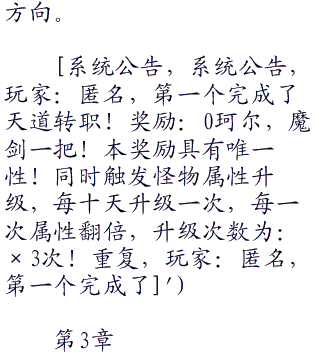 方向。
[系统公告，系统公告，
玩家：匿名，第一个完成了
天道转职！奖励：0珂尔，魔
剑一把！本奖励具有唯一
性！同时触发怪物属性升
级，每十天升级一次，每一
次属性翻倍，升级次数为：
×3次！重复，玩家：匿名，
第一个完成了]′)
第3章